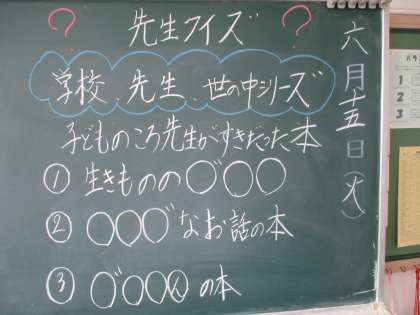 ? 先生クイズ ?
学校、先生、世の中シリーズ
子どものころ先生がすきだった本
① 生きものの〇゛〇〇
② 〇〇〇゛なお話の本
③ 〇゛〇〇んの本
六月十五日(火)
1
2
3